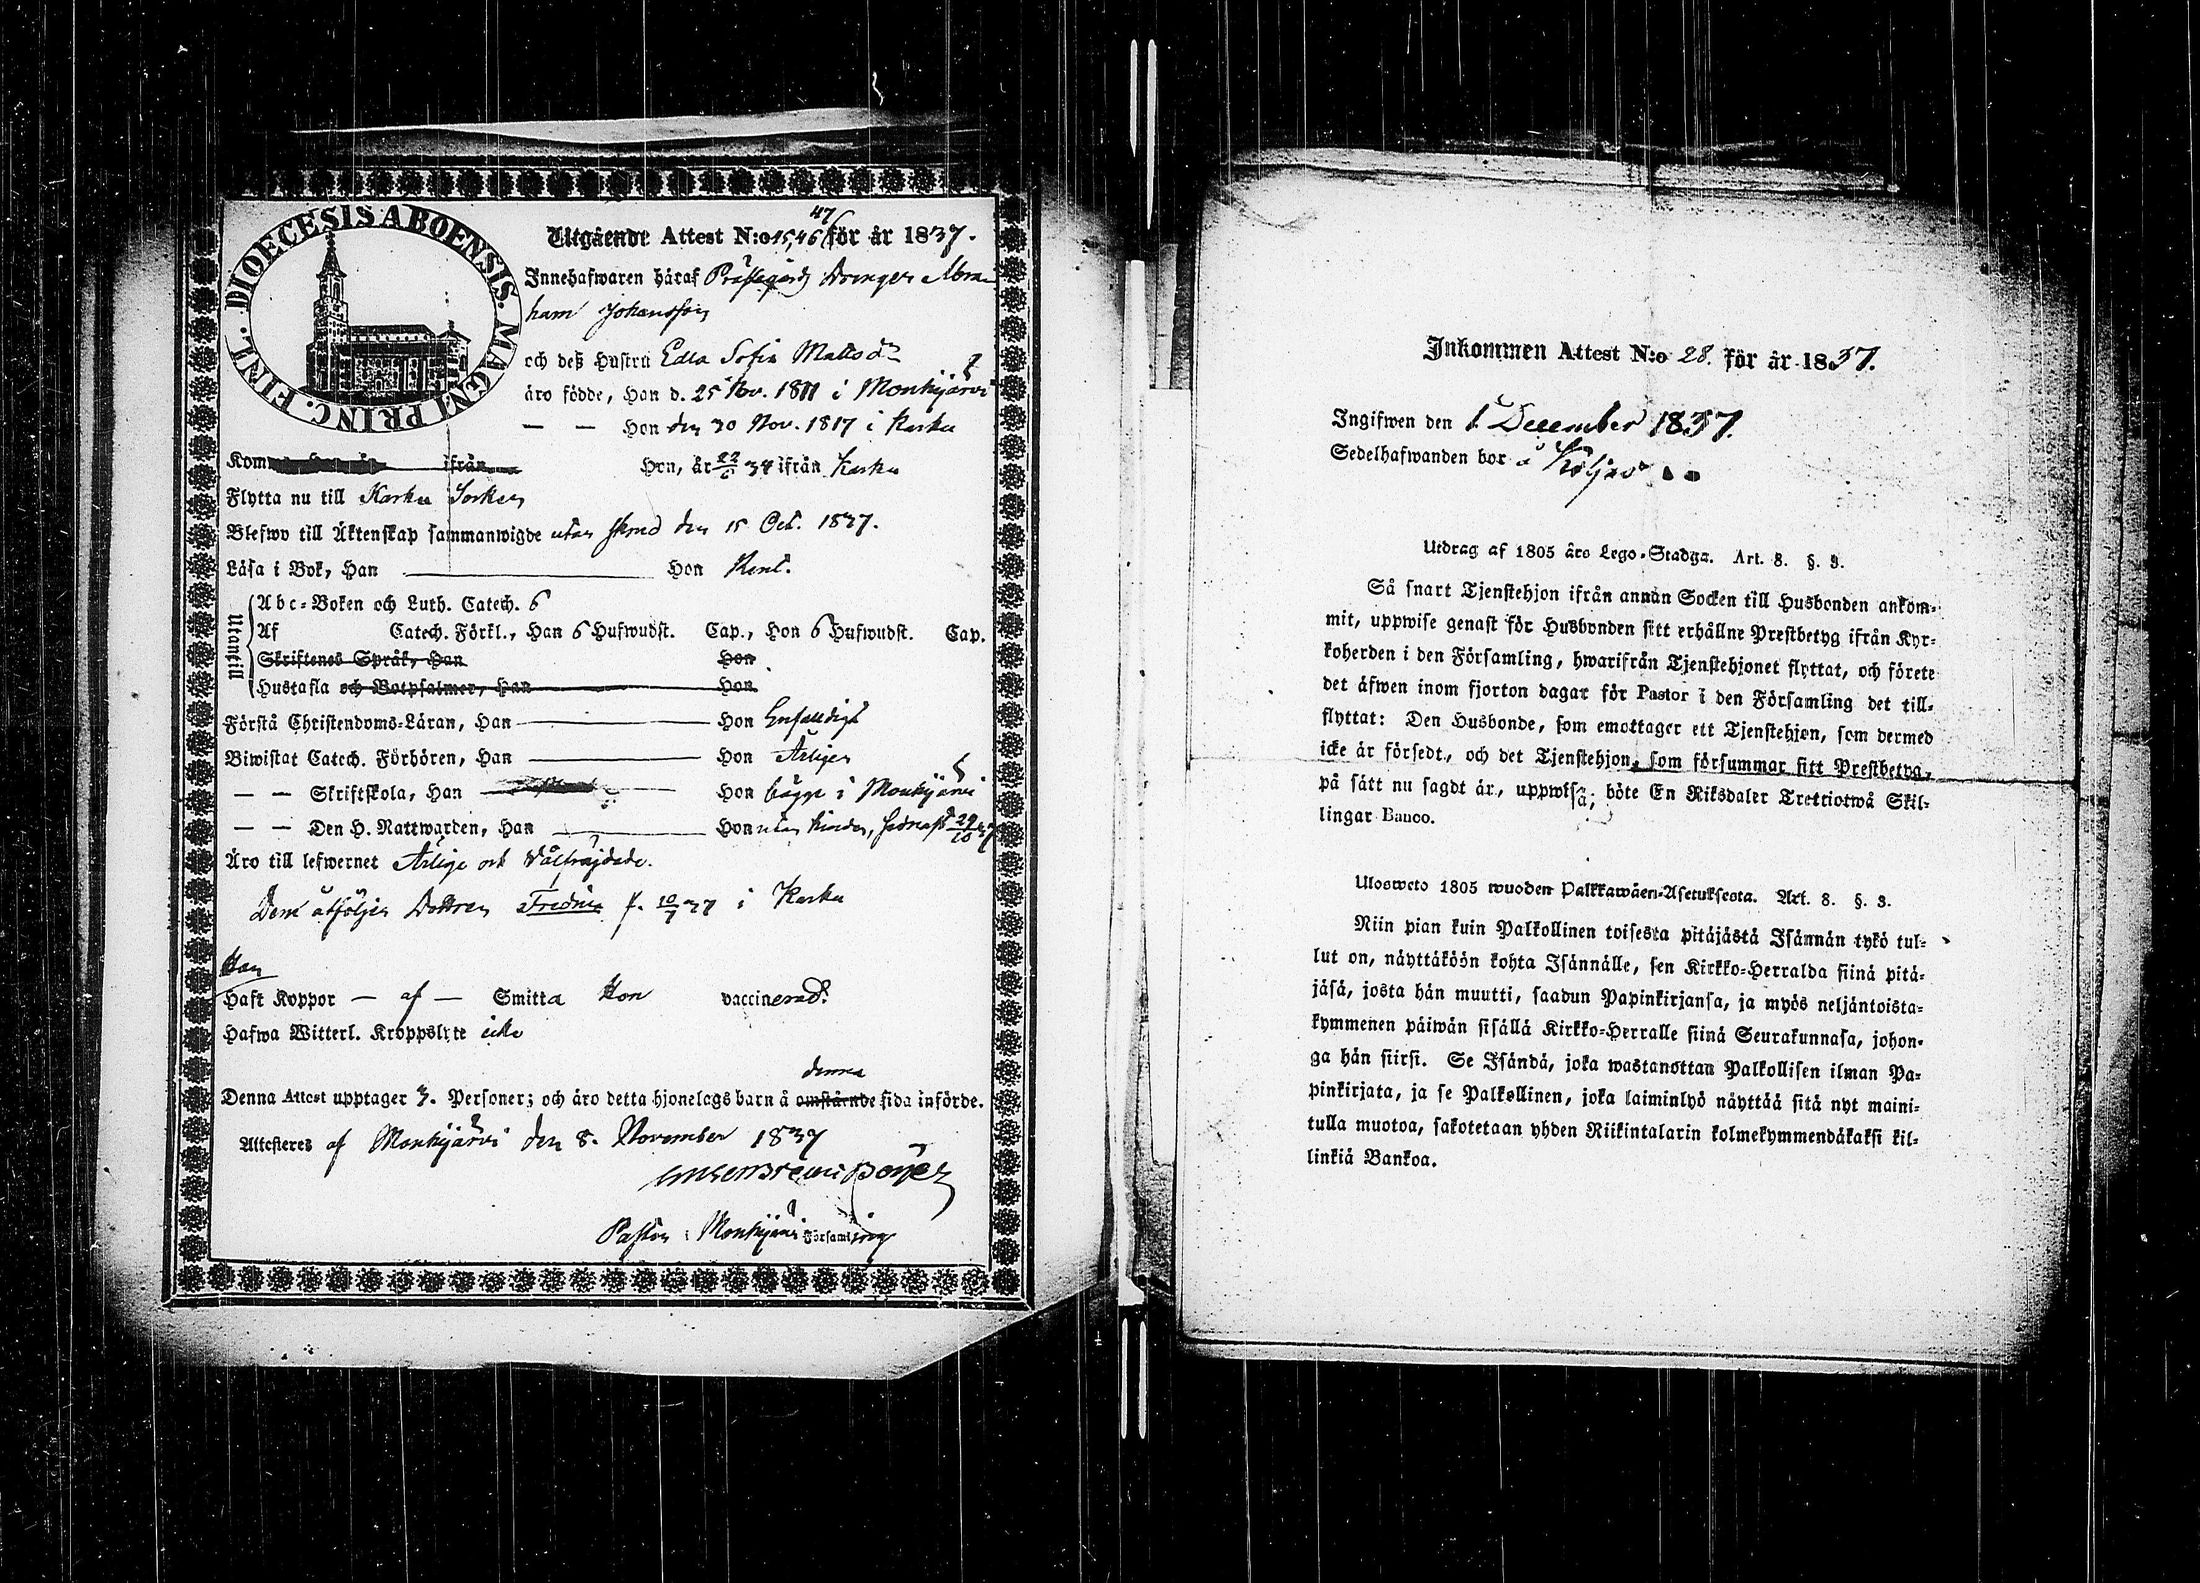 DIOECESIS ABOENSIS. MAGNI PRINC. FINL.
47
Utgående Attest N:o 45, 46 för år 1837.
Innehafwaren häraf Prästegårds Drengen Abra-
ham Johansson
och deß Hustru Edla Sofia Mattsdr
äro födde, Han d. 25 Nov. 1811 i Mouhijärvi
— — Hon den 30 Nov. 1817 i Karku
Kom ifrån Hon, år 34 ifrån Karku
Flytta nu till Karku Socken
Blefwo till Äktenskap sammanwigde utan den 15 Oct. 1837.
Läsa i Bok, Han Hon Rent.
Utantill
Abc-Boken och Luth. Catech. 6
Af Catech. Förkl., Han 6 Hufwudst. Cap., Hon 6 Hufwudst. Cap.
Skriftenes Språk, Han Hon
Hustafla och Botpsalmer, Han Hon
Förstå Christendoms-Läran, Han Hon Enfaldigt
Biwistat Catech. Förhören, Han Hon Årligen
— — Skriftskola, Han Hon bägge i Mouhijärvi
— — Den H. Nattwarden, Han Hon utan hinder, sednast 29/10 37
Äro till lefwernet Ärlige och Välfräjdade.
Dem åtföljer Dottren Fredrica f. 10/7 37 i Karku
Han
Haft Koppor — af — Smitta Hon vaccinerad.
Hafwa Witterl. Kroppslyte icke
denna
Denna Attest upptager 3. Personer; och äro detta hjonelags barn å omstående sida införde.
Attesteres af Mouhijärvi den 8. November 1837
Pastor i Mouhijärvi Församling
Inkommen Attest N:o 28. för år 1837.
Ingifwen den 1 December 1837.
Sedelhafwanden bor å
Utdrag af 1805 års Lego-Stadga. Art. 8. §. 3.
Så snart Tjenstehjon ifrån annan Socken till Husbonden ankom-
mit, uppwise genast för Husbonden sitt erhållne Prestbetyg ifrån Kyr-
koherden i den Församling, hwarifrån Tjenstehjonet flyttat, och förete
det äfwen inom fjorton dagar för Pastor i den Församling det till-
flyttat: Den Husbonde, som emottager ett Tjenstehjon, som dermed
icke är försedt, och det Tjenstehjon, som försummar sitt Prestbetyg,
på sätt nu sagdt är, uppwisa; böte En Riksdaler Trettiotwå Skil-
lingar Banco.
Ulosweto 1805 wuoden Palkkawäen-Asetuksesta. Art. 8. §. 3.
Niin pian kuin Palkollinen toisesta pitäjästä Isännän tykö tul-
lut on, näyttäköön kohta Isännälle, sen Kirkko-Herralda siinä pitä-
jäsä, josta hän muutti, saadun Papinkirjansa, ja myös neljäntoista-
kymmenen päiwän sisällä Kirkko-Herralle siinä Seurakunnasa, johon-
ga hän siirsi. Se Isändä, joka wastanottan Palkollisen ilman Pa-
pinkirjata, ja se Palkollinen, joka laiminlyö näyttää sitä nyt maini-
tulla muotoa, sakotetaan yhden Riikintalarin kolmekymmendäkaksi kil-
linkiä Bankoa.